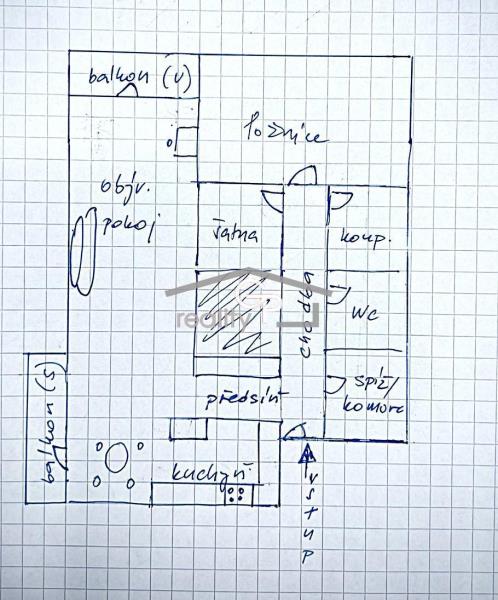 balkon (V)
ložnice
obýv.
pokoj
šatna
koup.
chodba
WC
reality
spíž/
komora
předsíň
balkon (S)
kuchyň
vstup